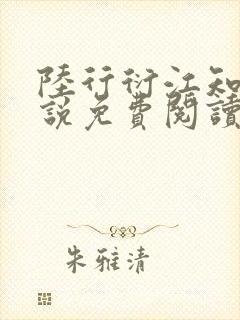 陸行衍江知
説免費閱讀
朱雅清